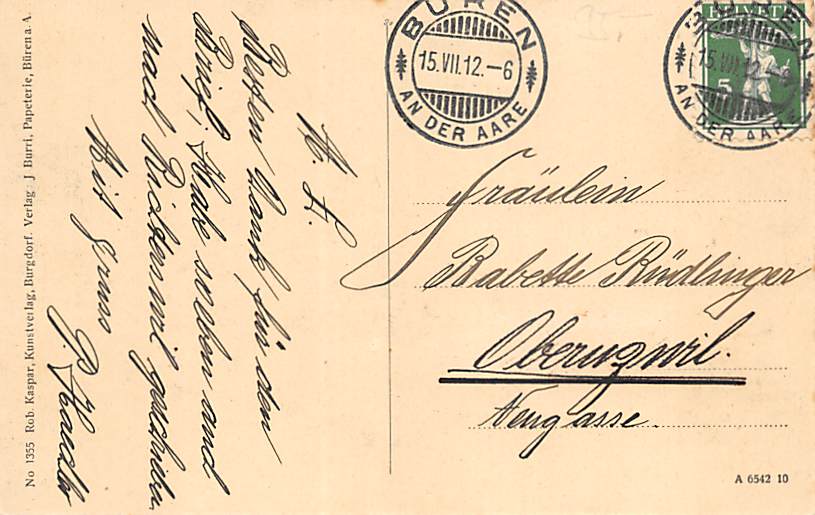 BÜREN
15.VII.12.-6
AN DER AARE
HELVETIA
5
BÜREN
15.VII.12.-6
AN DER AARE
Fräulein
Babette Rüdlinger
Oberuzwil.
Neugasse.
M. L.
Besten Dank für den
Brief, Habe soeben auch
nach Richterswil geschrieben
Mit Gruss
No 1355 Rob. Kaspar, Kunstverlag, Burgdorf. Verlag: J Burri, Papeterie, Büren a. A.
A 6542 10